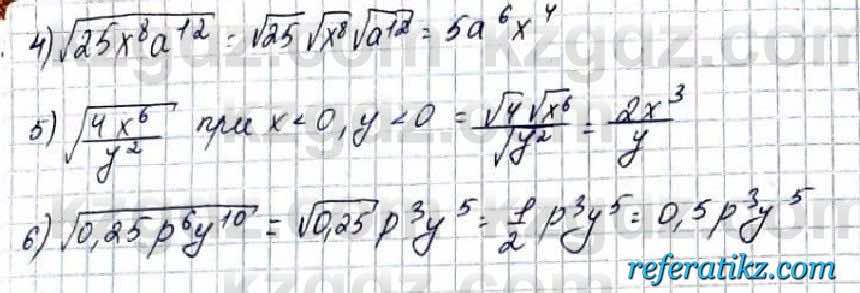 4) √25x⁸a¹² = √25 √x⁸ √a¹² = 5a⁶x⁴
5) √(4x⁶/y²) при x < 0, y < 0 = √4 √x⁶/√y² = 2x³/y
6) √0,25p⁶y¹⁰ = √0,25 p³y⁵ = 1/2 p³y⁵ = 0,5p³y⁵
referatikz.com